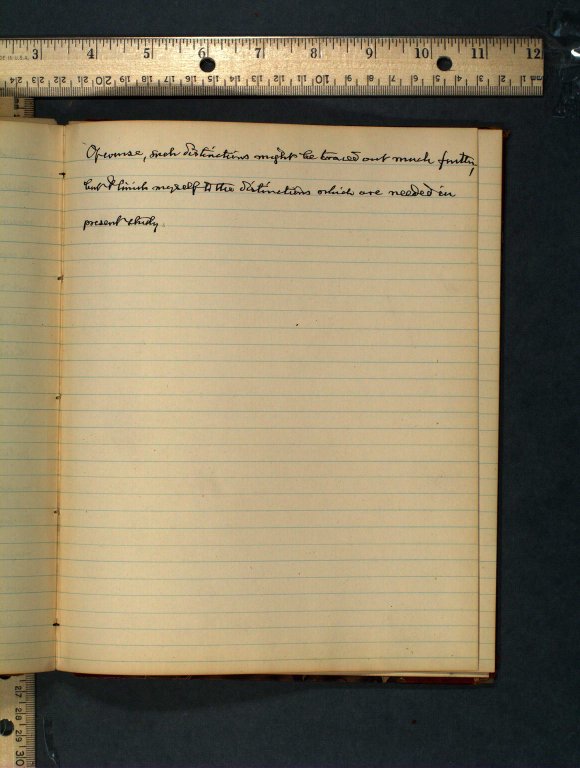 3 4 5 6 7 8 9 10 11 12
Of course, such distinctions might be traced out much further,
but I limit myself to the distinctions which are needed in
present study.